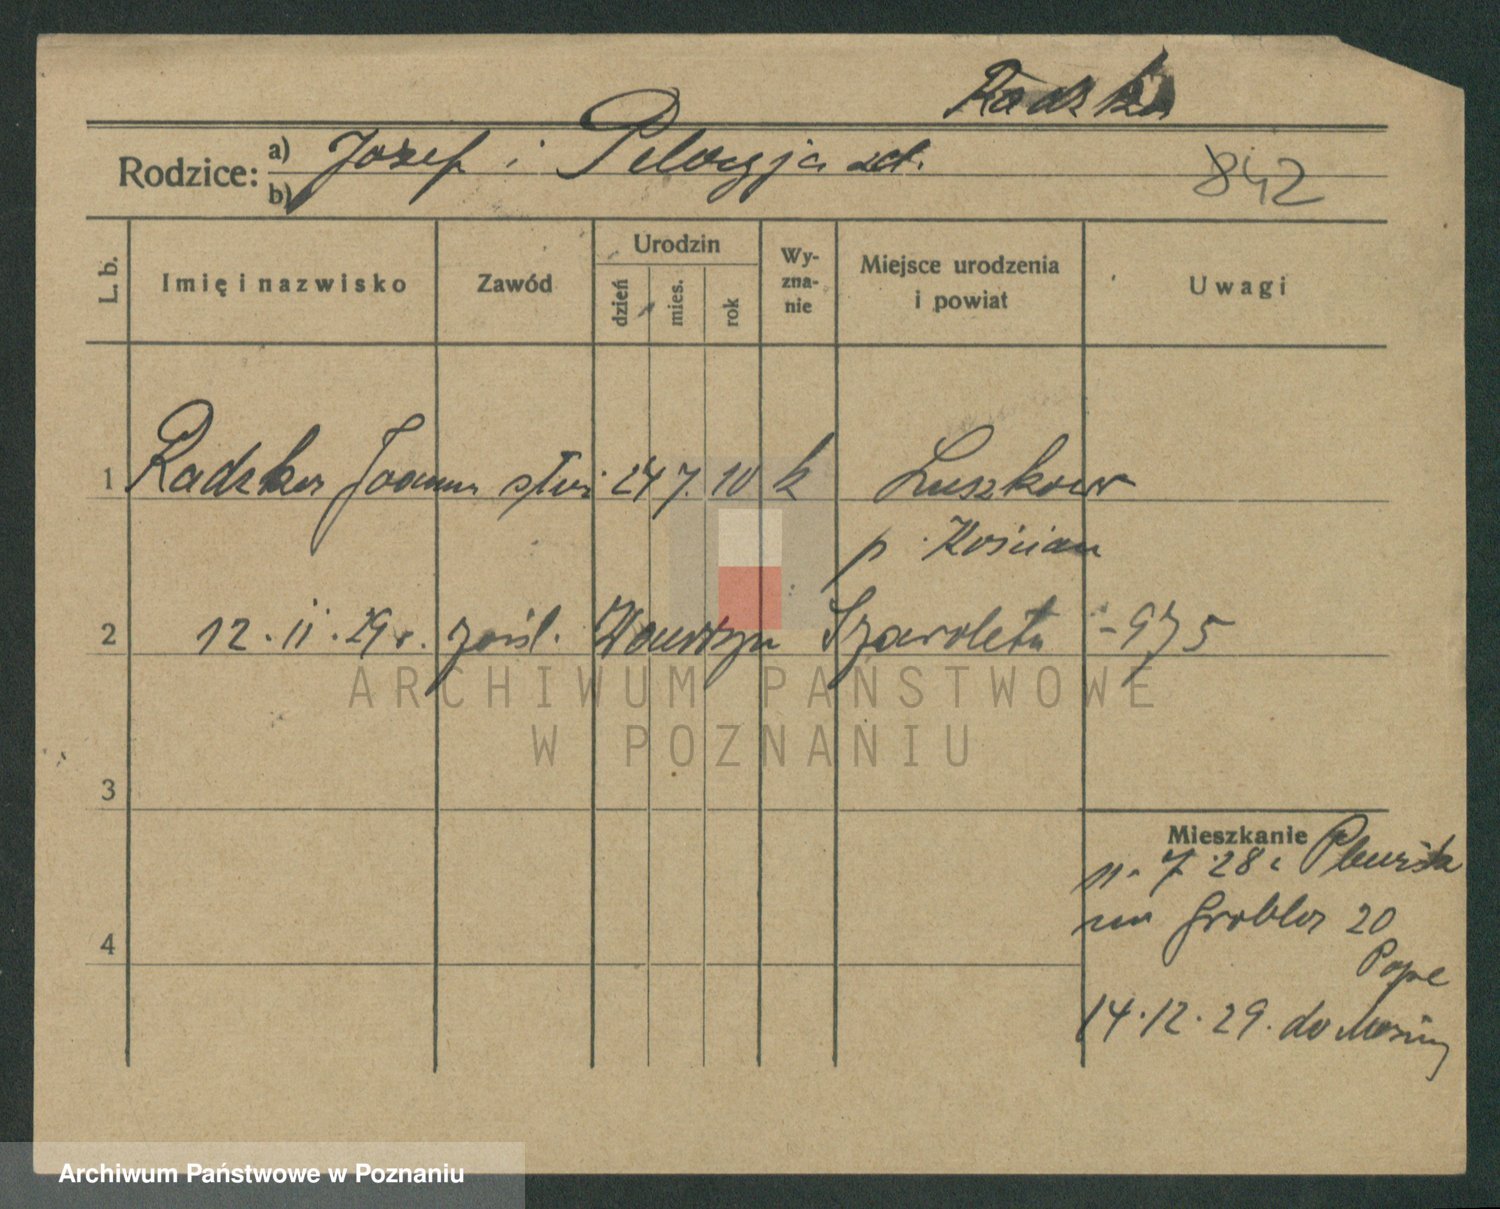 Radzka
Rodzice: a) Józef i Pelagja zd.
b)
842
L. b.
Imię i nazwisko
Zawód
Urodzin
dzień
mies.
rok
Wy-
zna-
nie
Miejsce urodzenia
i powiat
Uwagi
1 Radzka Joanna służ 24 7. 10 k Luszkowo
p. Kościan
2 12. 11. 29 r. zaśl. Wawrzyn Szaroleta - 975
3
Mieszkanie
11. 7. 28 z
na Grobla 20
4
14. 12. 29. do Mosiny
ARCHIWUM PAŃSTWOWE
W POZNANIU
Archiwum Państwowe w Poznaniu